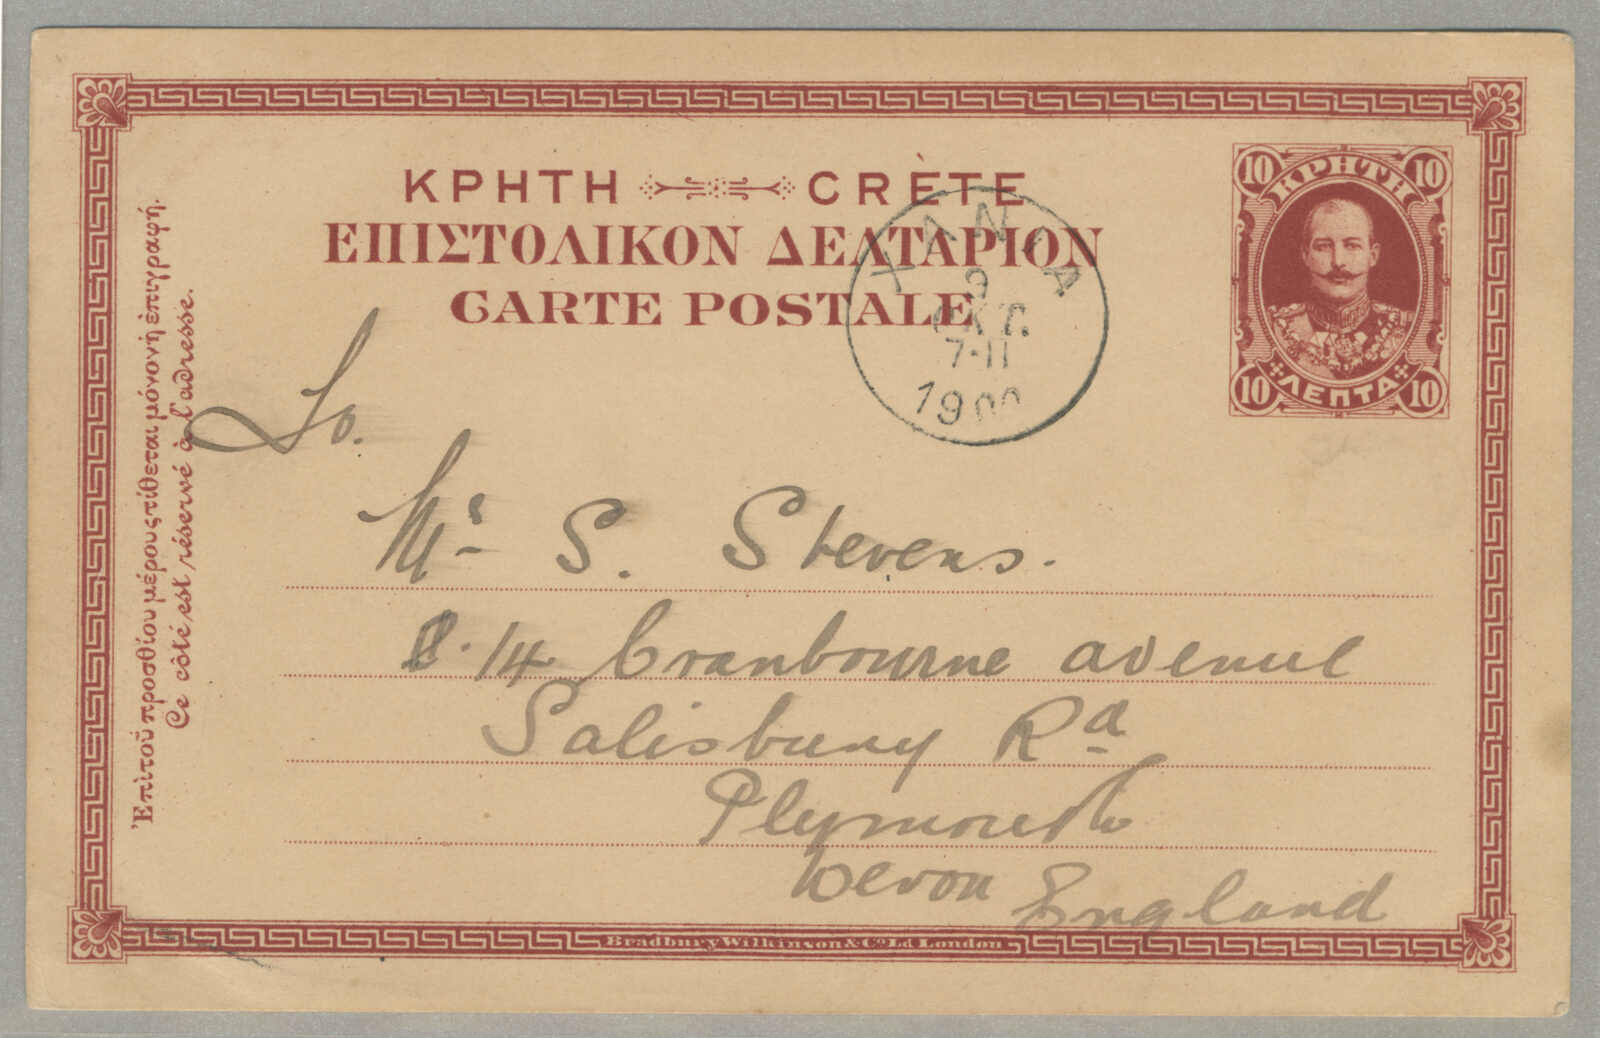 ΚΡΗΤΗ CRÈTE
ΕΠΙΣΤΟΛΙΚΟΝ ΔΕΛΤΑΡΙΟΝ
CARTE POSTALE
10 ΚΡΗΤΗ 10
10 ΛΕΠΤΑ 10
ΧΑΝΙΑ
9
ΟΚΤ.
7-11
1900
Ἐπὶ τοῦ προσθίου μέρους τίθεται μόνον ἡ ἐπιγραφή.
Ce côté est réservé à l'adresse.
To.
Mrs S. Stevens.
14 Cranbourne avenue
Salisbury Rd
Plymouth
Devon England
Bradbury Wilkinson & Co Ld London